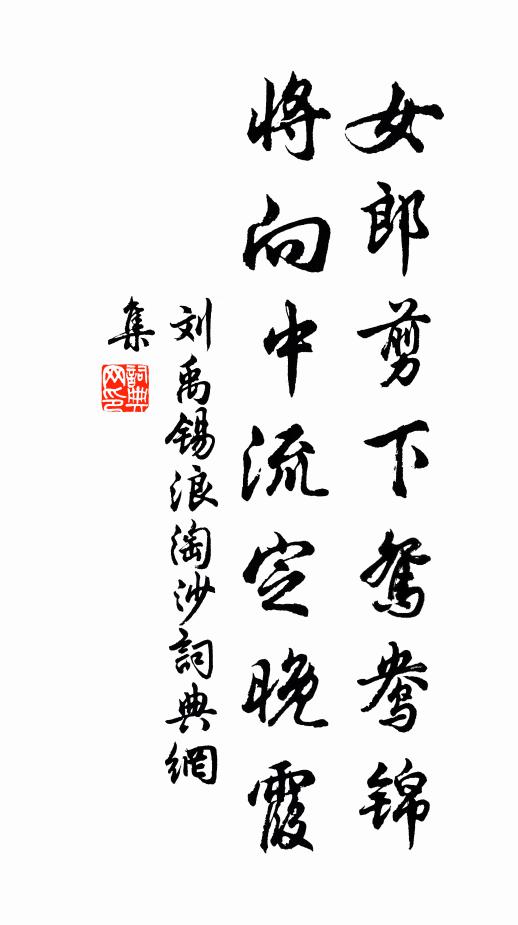 女郎剪下鸳鸯锦
将向中流定晚霞
刘禹锡浪淘沙詞典網
集
詞典
网印